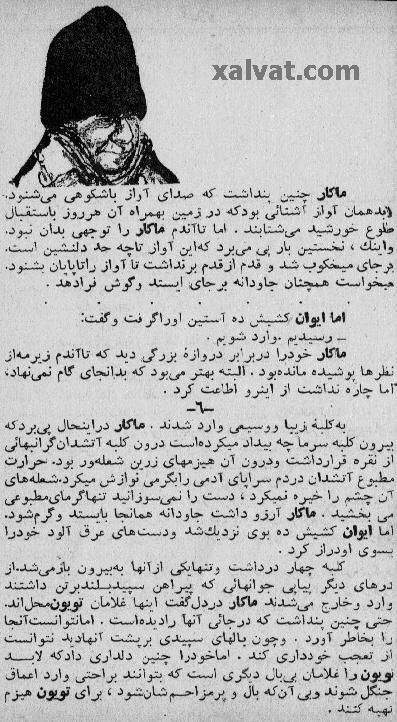 xalvat.com
ماکار چنین پنداشت که صدای آواز باشکوهی می‌شنود.
لابدهمان آواز آشنائی بودکه در زمین بهمراه آن هرروز باستقبال
طلوع خورشید می‌شتابند . اما تاآندم ماکار را توجهی بدان نبود.
واینك ، نخستین بار پی می‌برد که‌این آواز تاچه حد دلنشین است.
برجای میخکوب شد و قدم ازقدم برنداشت تا آواز راتاپایان بشنود.
میخواست همچنان جاودانه برجای ایستد وگوش فرادهد .
اما ایوان کشیش ده آستین اوراگرفت وگفت:
ـ رسیدیم .وارد شویم .
ماکار خودرا دربرابر دروازهٔ بزرگی دید که تاآندم زیرمه‌از
نظرها پوشیده مانده‌بود . البته بهتر می‌بود که بدانجای گام نمی‌نهاد،
اما چاره نداشت از اینرو اطاعت کرد .
ـ٦ـ
به‌کلبهٔ زیبا ووسیعی وارد شدند . ماکار دراینحال پی‌بردکه
بیرون کلبه سرما چه بیداد میکرده‌است درون کلبه آتشدان‌گرانبهائی
از نقره قرارداشت ودرون آن هیزمهای زرین شعله‌ور بود. حرارت
مطبوع آتشدان دردم سراپای آدمی رابگرمی نوازش میکرد.شعله‌های
آن چشم را خیره نمیکرد ، دست را نمی‌سوزانید تنهاگرمای‌مطبوعی
می بخشید . ماکار آرزو داشت جاودانه همانجا بایستد وگرم‌شود.
اما ایوان کشیش ده بوی نزدیك‌شد ودست‌های عرق آلود خودرا
بسوی اودراز کرد .
کلبه چهار درداشت وتنهایکی ازآنها به‌بیرون بازمی‌شد.از
درهای دیگر پیاپی جوانهائی که پیراهن سپیدبلندبرتن داشتند
وارد وخارج می‌شدند ماکار دردل‌گفت اینها غلامان تویون‌محل‌اند.
حتی چنین پنداشت که درجائی آنها رادیده‌است . امانتوانست‌آنجا
را بخاطر آورد . وچون بالهای سپیدی برپشت آنهادید نتوانست
از تعجب خودداری کند . اماخودرا چنین دلداری دادکه لابــد
تویون راغلامان بی‌بال دیگری است که بتوانند براحتی وارد اعماق
جنگل شوند وبی‌آن‌که بال و پرمزاحــم‌شان‌شود ، برای تویون هیزم
تهیه کنند .